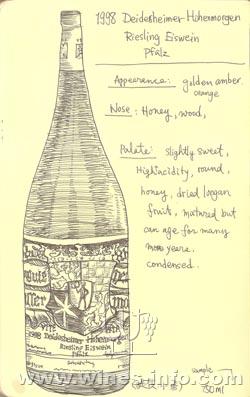 1998 Deidesheimer Hohenmorgen
Riesling Eiswein
Pfalz
Appearance: golden amber
orange
Nose: Honey, wood,
Palate: slightly sweet,
High acidity, round,
honey, dried longan
fruit, matured but
can age for many
more years.
condensed.
1998 Deidesheimer Hohenmorgen
Riesling Eiswein
Pfalz
sample
www.wines-info.com